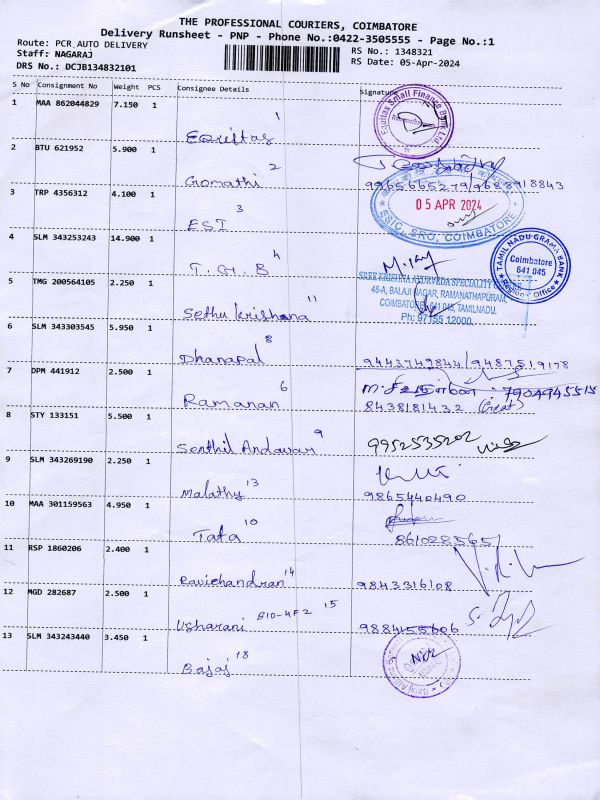 THE PROFESSIONAL COURIERS, COIMBATORE
Delivery Runsheet - PNP - Phone No.:0422-3505555 - Page No.:1
Route: PCR AUTO DELIVERY
RS No.: 1348321
Staff: NAGARAJ
RS Date: 05-Apr-2024
DRS No.: DCJB134832101
S No Consignment No Weight PCS Consignee Details Signature
1 MAA 862044829 7.150 1
Equitas 1
Equitas Small Finance Bank Ltd
2 BTU 621952 5.900 1
Gomathi 2
9965665279/9688918843
3 TRP 4356312 4.100 1
EST 3
05 APR 2024
ESIC, SRO, COIMBATORE
4 SLM 343253243 14.900 1
T.G.B 4
TAMIL NADU GRAMA BANK
Coimbatore
641 045
Regional Office
5 TMG 200564105 2.250 1
Sethu Krishana 11
SREE KRISHNA AYURVEDA SPECIALITY
48-A, BALAJI NAGAR, RAMANATHAPURAM,
COIMBATORE - 641 045, TAMILNADU.
Ph: 97155 12000
6 SLM 343303545 5.950 1
Dhanapal 8
9443749844/9487519178
7 DPM 441912 2.500 1
Ramanan 6
7904945515
8438181432
8 STY 133151 5.500 1
Senthil Andavar 9
9952535202
9 SLM 343269190 2.250 1
Malathy 13
9865440490
10 MAA 301159563 4.950 1
Tata 10
8610285651
11 RSP 1860206 2.400 1
Ravichandran 14
9843316108
12 MGD 282687 2.500 1
Usharani B10-4F2 15
9884155606
13 SLM 343243440 3.450 1
Bajaj 18